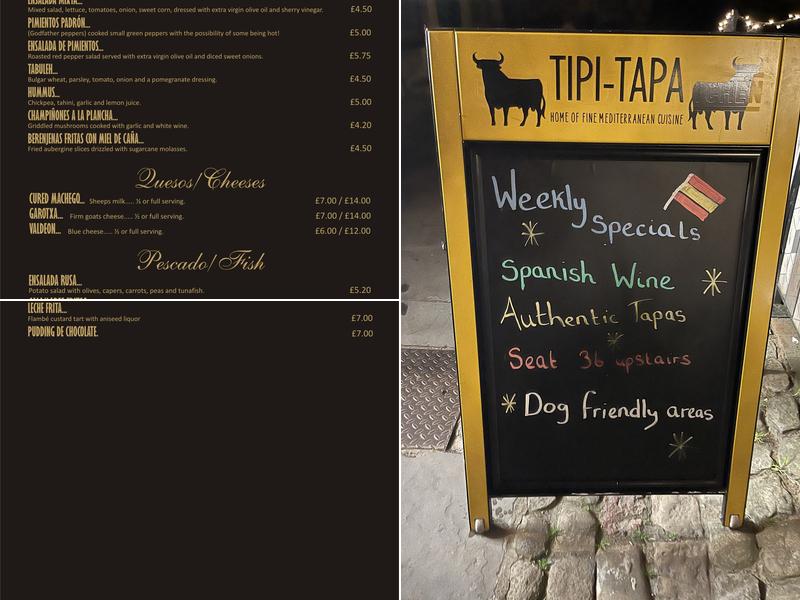 ENSALADA MIXTA...
Mixed salad, lettuce, tomatoes, onion, sweet corn, dressed with extra virgin olive oil and sherry vinegar. £4.50
PIMIENTOS PADRÓN...
(Godfather peppers) cooked small green peppers with the possibility of some being hot! £5.00
ENSALADA DE PIMIENTOS...
Roasted red pepper salad served with extra virgin olive oil and diced sweet onions. £5.75
TABULEH...
Bulgar wheat, parsley, tomato, onion and a pomegranate dressing. £4.50
HUMMUS...
Chickpea, tahini, garlic and lemon juice. £5.00
CHAMPIÑONES A LA PLANCHA...
Griddled mushrooms cooked with garlic and white wine. £4.20
BERENJENAS FRITAS CON MIEL DE CAÑA...
Fried aubergine slices drizzled with sugarcane molasses. £4.50
Quesos/Cheeses
CURED MACHEGO... Sheeps milk..... ½ or full serving. £7.00 / £14.00
GAROTXA... Firm goats cheese..... ½ or full serving. £7.00 / £14.00
VALDEON... Blue cheese..... ½ or full serving. £6.00 / £12.00
Pescado/Fish
ENSALADA RUSA...
Potato salad with olives, capers, carrots, peas and tunafish. £5.20
LECHE FRITA...
Flambé custard tart with aniseed liquor £7.00
PUDDING DE CHOCOLATE. £7.00
TIPI-TAPA
HOME OF FINE MEDITERRANEAN CUISINE
Weekly
Specials
Spanish Wine
Authentic Tapas
Seat 36 upstairs
Dog friendly areas